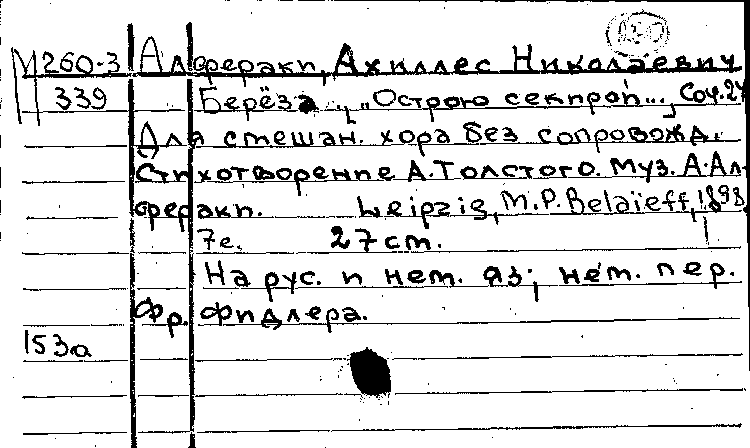 М260-3 Алфераки, Ахиллес Николаевич
339 Берёза... [„Острою секирой"...] Соч. 24
Для смешан. хора без сопровожд.
Стихотворение А. Толстого. Муз. А. Ал-
фераки. Leipzig, M. P. Belaïeff, 1898
7 с. 27 cm.
На рус. и нем. яз; нем. пер.
Фр. Фидлера.
153а